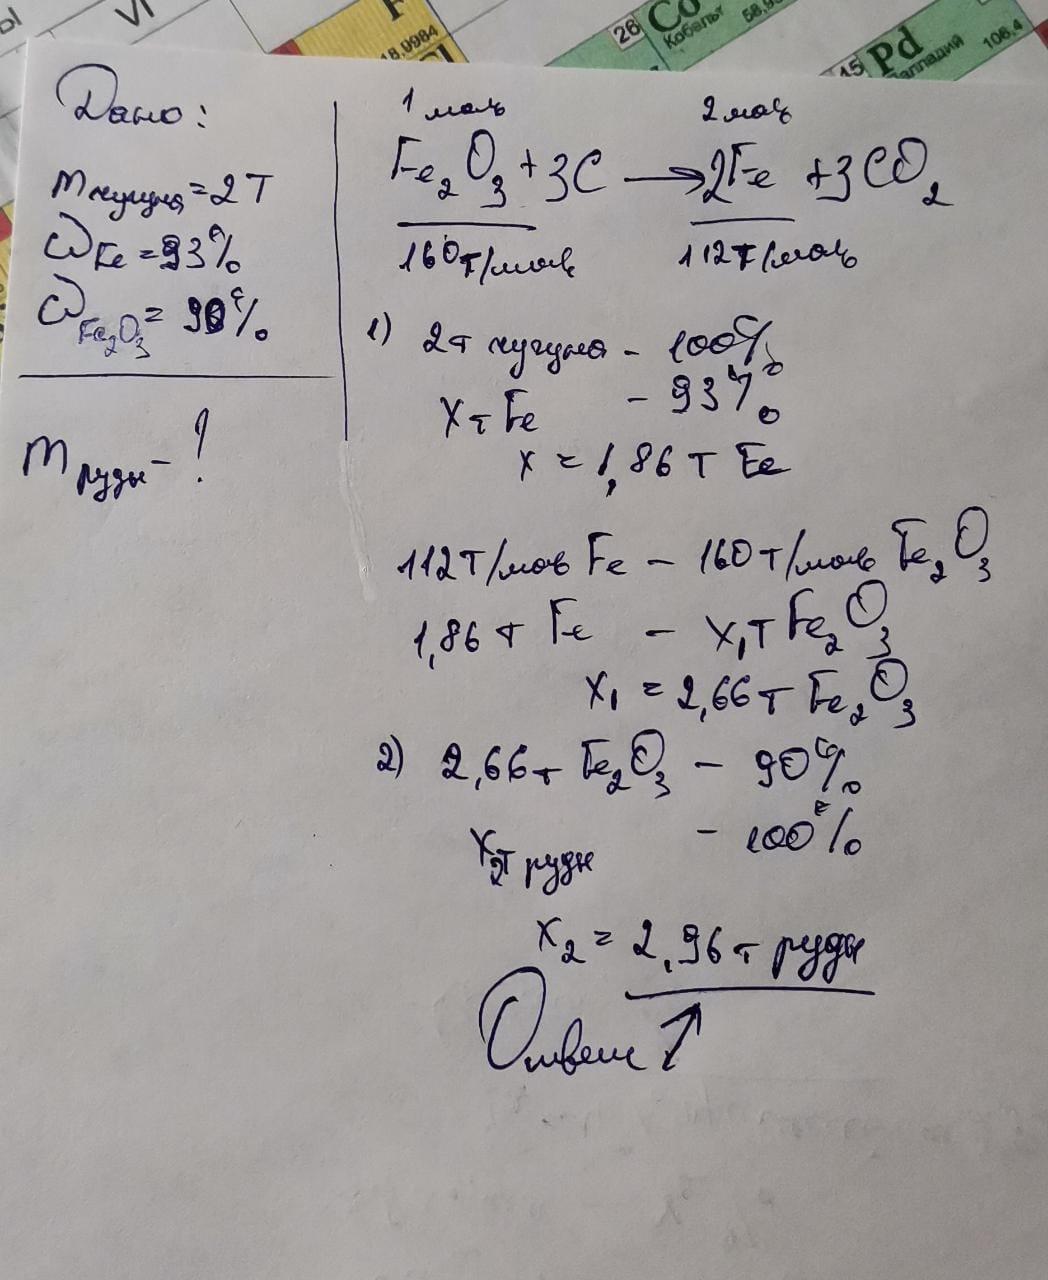 VI
F
18,9984
26 Co
Кобальт
58,93
Pd
Палладий
106,4
Дано:
m чугуна = 2 т
ω Fe = 93%
ω Fe₂O₃ = 90%
m руды - ?
1 моль 2 моль
Fe₂O₃ + 3C → 2Fe + 3CO₂
160 т/моль 112 т/моль
1) 2 т чугуна - 100%
x т Fe - 93%
x = 1,86 т Fe
112 т/моль Fe - 160 т/моль Fe₂O₃
1,86 т Fe - x₁ т Fe₂O₃
x₁ = 2,66 т Fe₂O₃
2) 2,66 т Fe₂O₃ - 90%
x₂ т руды - 100%
x₂ = 2,96 т руды
Ответ ↑